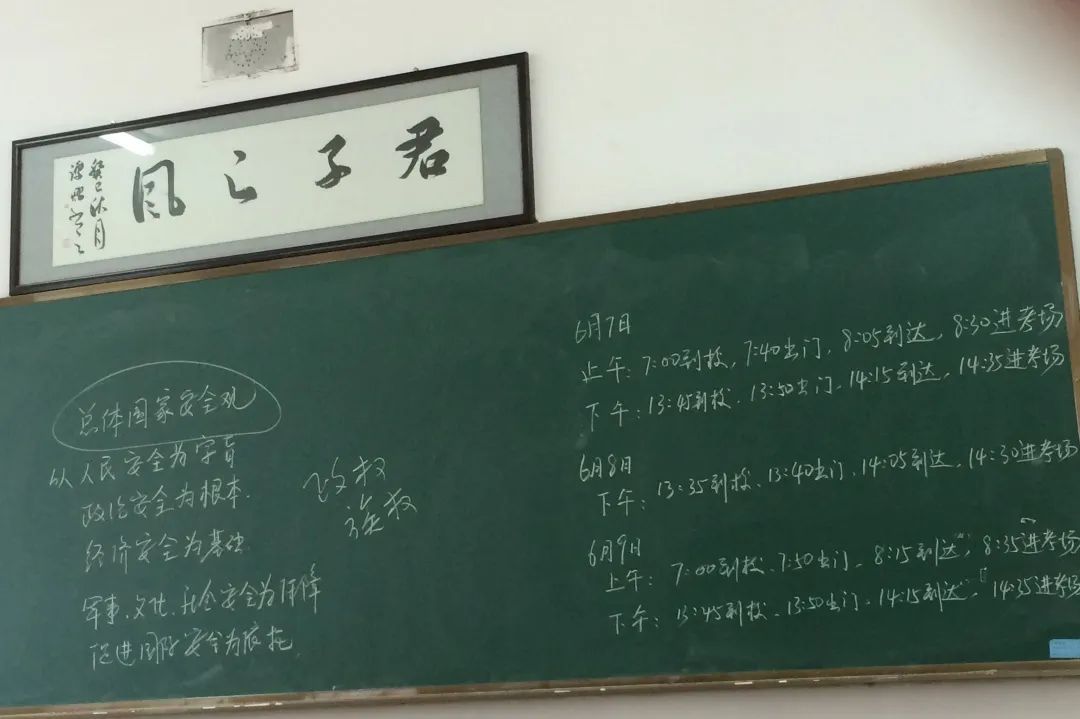 君子之风
癸巳秋月
总体国家安全观
以人民安全为宗旨
政治安全为根本.
经济安全为基础
军事、文化、社会安全为保障
促进国际安全为依托.
政权
6月7日
上午：7:00到校，7:40出门，8:05到达，8:30进考场
下午：13:45到校、13:50出门，14:15到达，14:35进考场
6月8日
下午：13:35到校、13:40出门，14:05到达，14:30进考场
6月9日
上午：7:00到校、7:50出门、8:15到达，8:35进考场
下午：13:45到校、13:50出门、14:15到达，14:35进考场